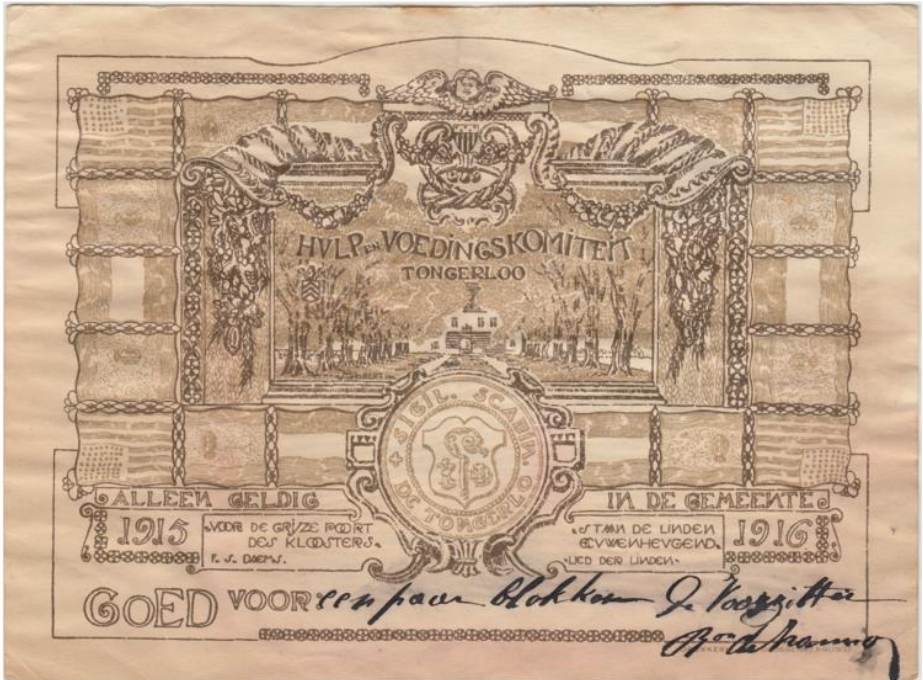 HVLP EN VOEDINGSKOMITEIT
TONGERLOO
SIGIL. SCABIN. DE TONGERLO
ALLEEN GELDIG
IN DE GEMEENTE
1915
1916
VOOR DE GRIJZE POORT
DES KLOOSTERS.
F. S. DAEMS.
STAAN DE LINDEN
EEVWENHEVGEND.
LIED DER LINDEN.
GOED VOOR een paar blokken De Voorzitter